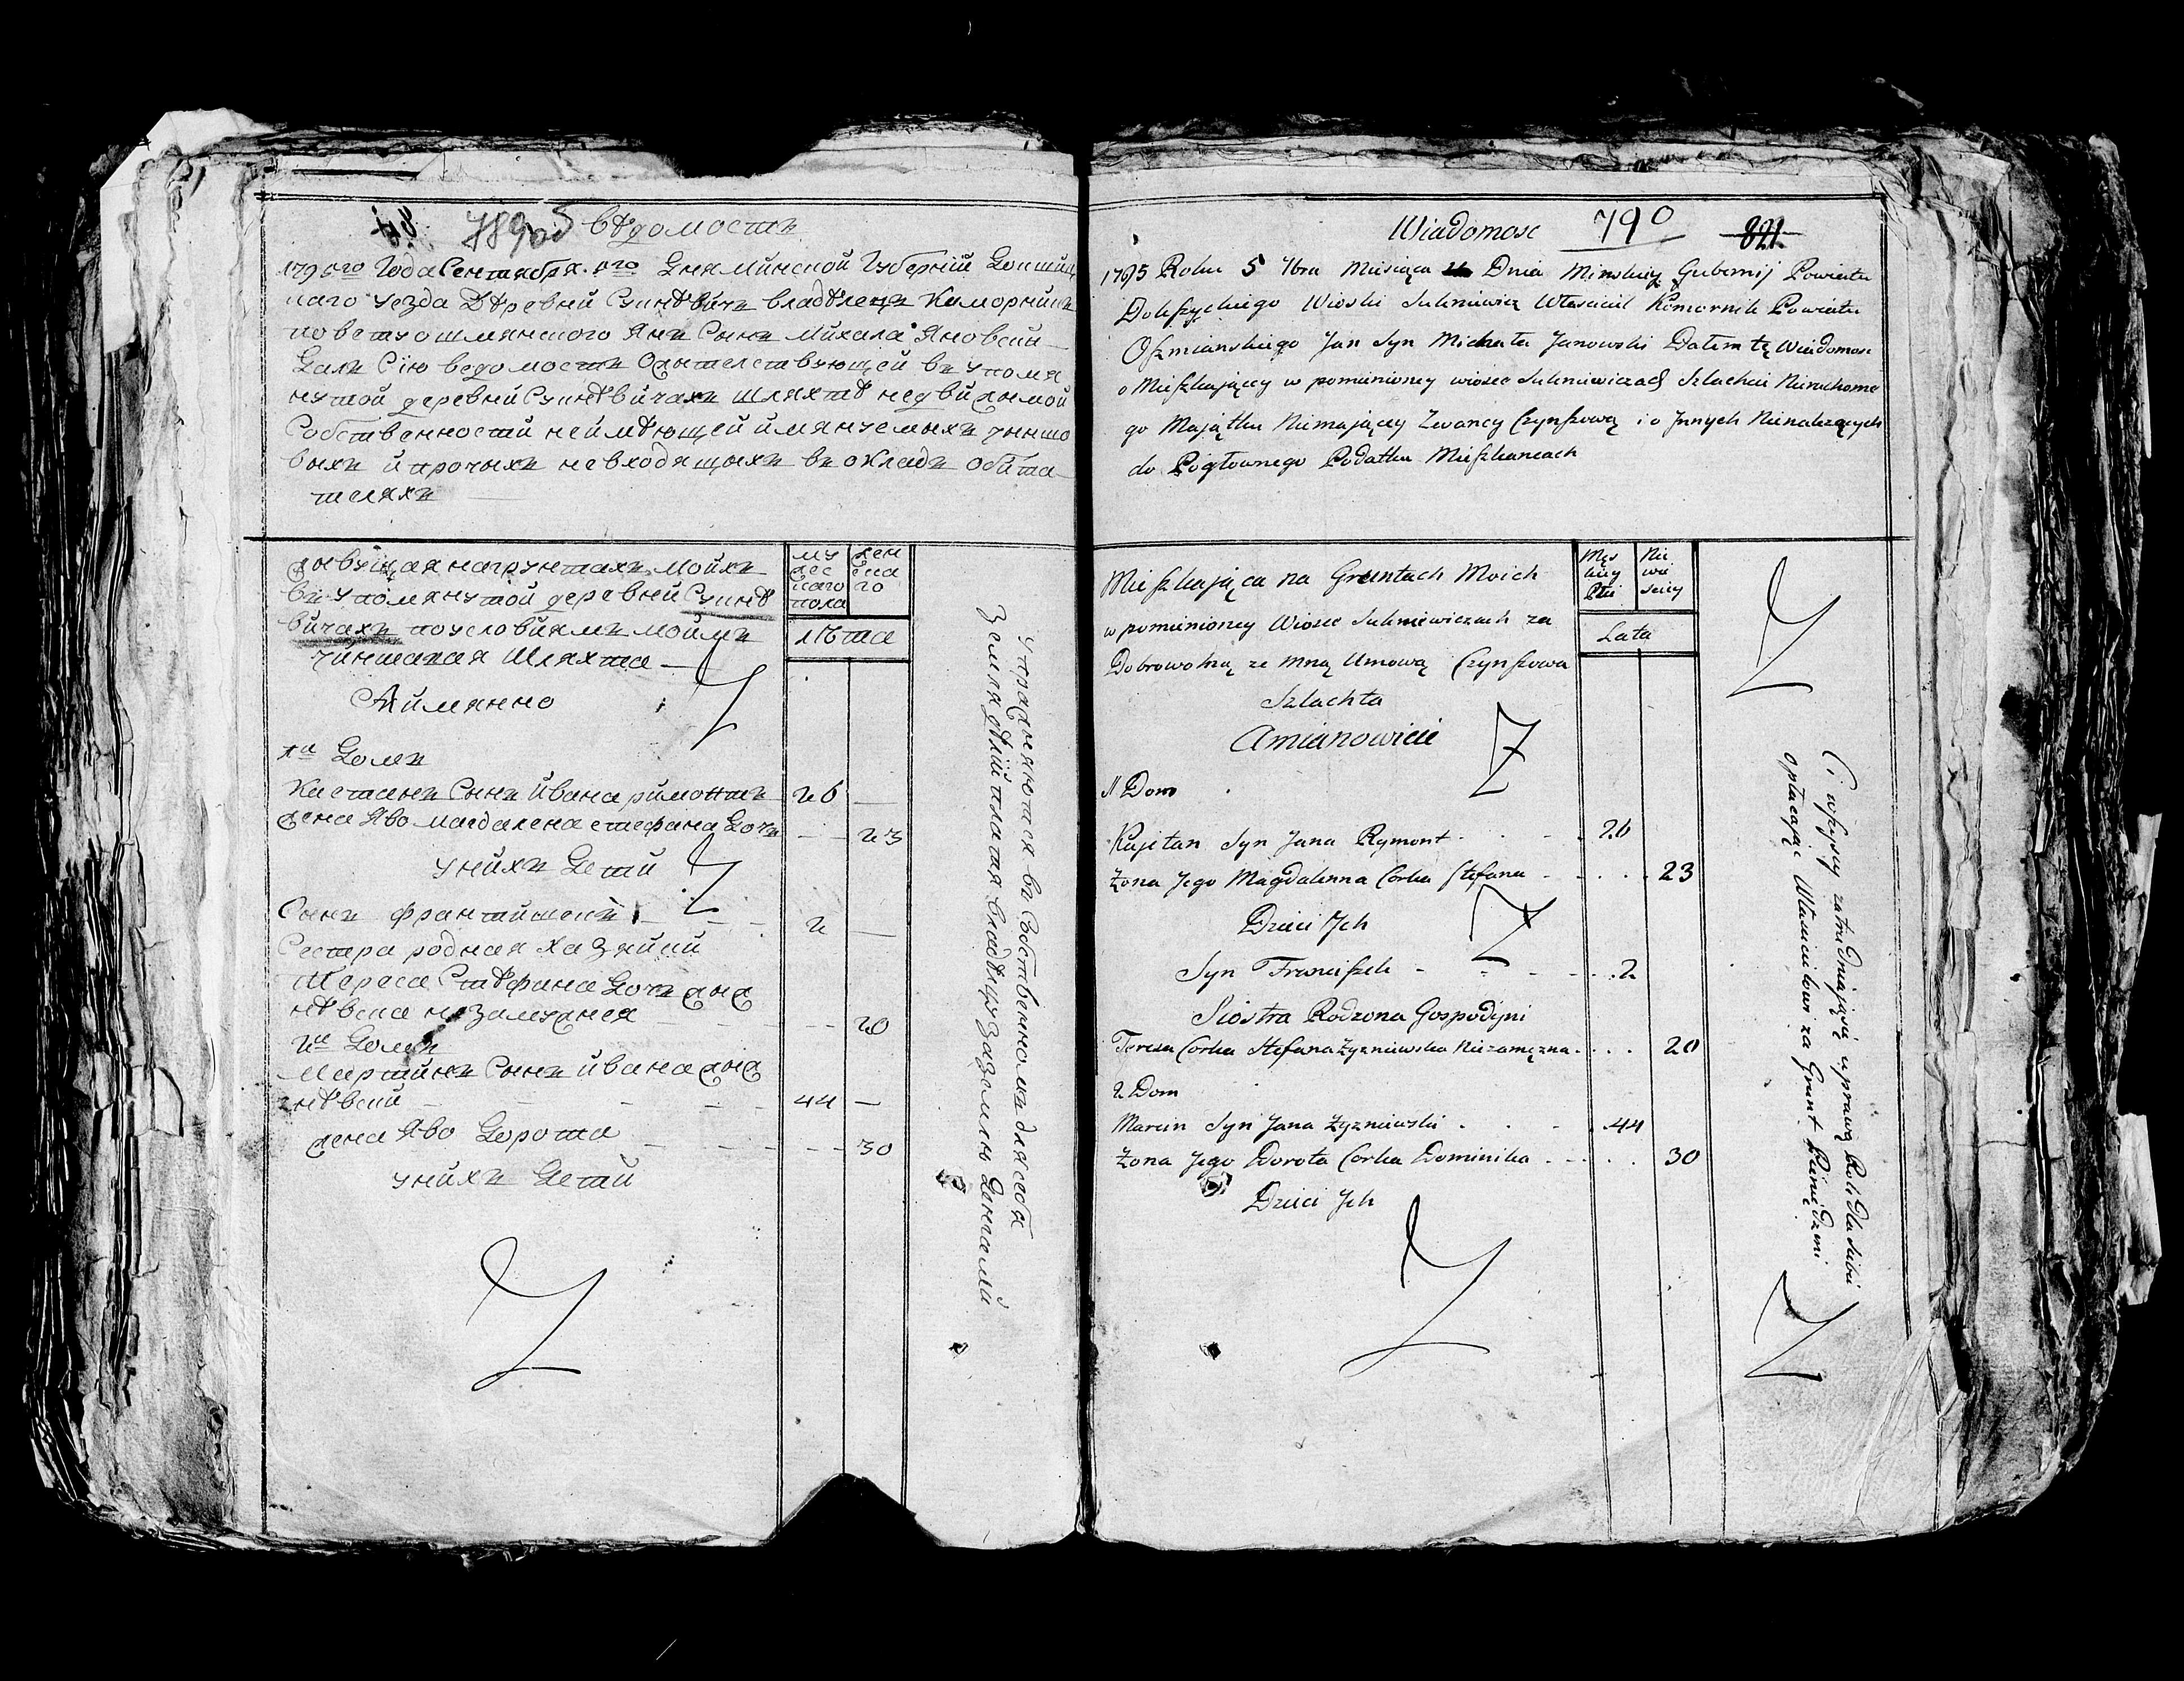 789
вѣдомость
1795го Года Сентября 5го Дня Минской Губерніи Докшиц
каго уезда Деревни Сулнѣвичъ владѣлецъ Каморникъ
поветуошмянского Янъ Сынъ Михала Яновски
Далъ Сію ведомость Ожытелствующей въ упомя
нутой деревни Сулнѣвичахъ шляхтѣ недвижымой
Собственности неимѣющей имянуемыхъ чыншо
выхъ и прочыхъ невходящыхъ въ окладъ обита
теляхъ
жывущая нагрунтахъ моихъ
въ упомянутой деревни Сулнѣ
вичахъ поусловиямъ моимъ
чиншавая Шляхта
А имянно
му
жес
каго
пола
жен
ска
го
лѣта
1й Домъ
Каетанъ Сынъ Ивана римонтъ 26 —
жена Яво магдалена стефана Дочь — 23
унихъ Дети
Сынъ франтишекъ 2 —
Сестра родная хазяйки
Тереса Стѣфана Дочъ жыж
нѣвска незамужнея — 20
2й Домъ
Мартинъ Сынъ ивана жыж
нѣвский 44 —
жена Яво Дорота — 30
унихъ Дети
упражняются въ собственномъ для себя
Земля дѣлии платя владѣлцу за землю Денгами
Wiadomosc 790 821
1795 Roku 5 7bra Miesiąca Dnia Minskiey Gubernij Powiatu
Dokszyckiego Wioski Sulniewicz Własciciel Komornik Powiatu
Oszmianskiego Jan Syn Michała Janowski Dałem tę Wiadomosc
o Mieszkaiącey w pomienioney wiosce Sulniewiczach Szlachcie Nieruchome
go Maiątku Niemaiącey Zwaney Czynszową i o Jnnych Nienalezących
do Pogłownego Podatku Mieszkancach
Mieszkaiąca na Gruntach Moich
w pomienioney Wiosce Sulniewiczach za
Dobrowolną ze mną Umową Czynszowa
Szlachta
Amianowicie
Męs
kiey
Płci
Nie
wie
sciey
Lata
1 Dom
Kajetan Syn Jana Rymont 26
Zona Jego Magdalenna Corka Stefana 23
Dzieci Jch
Syn Franciszek 2
Siostra Rodzona Gospodyni
Teresa Corka Stefana Zyzniewska Niezamęzna 20
2 Dom
Marcin Syn Jana Zyzniewski 44
Zona Jego Dorota Corka Dominika 30
Dzieci Jch
Ci wszyscy zatrudniaią się uprawą Roli dla siebie
opłacaiąc Własciecielowi za Grunt Pieniędzmi